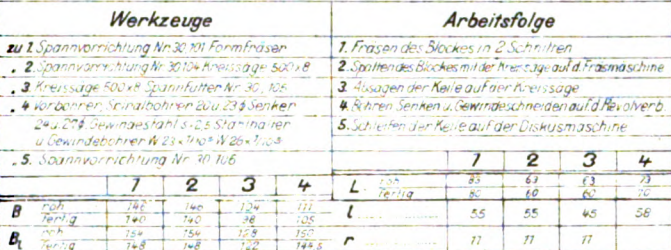 Werkzeuge
zu 1. Spannvorrichtung Nr. 30,101 Formfräser
„ 2. Spannvorrichtung Nr 30104 Kreissäge 500 x 8
„ 3 Kreissäge 500 x 8 Spannfutter Nr. 30, 105
„ 4 Vorbohrer, Spiralbohrer 20 u 23 ϕ Senker
24 u. 27 ϕ Gewindestahl
u Gewindebohrer
„ 5. Spannvorrichtung Nr 30 106
1 2 3 4
B roh 146 146 104 111
fertig 140 140 98 105
B₁ roh 154 154 128 150
fertig 148 148 122 144,5
Arbeitsfolge
1. Fräsen des Blockes in 2 Schnitten
2. Spalten des Blockes mit der Kreissäge auf d. Fräsmaschine
3. Absagen der Keile auf der Kreissäge
4. Bohren Senken u. Gewindeschneiden auf d. Revolverb
5. Schleifen der Keile auf der Diskusmaschine
1 2 3 4
L roh 83 63 63 73
fertig 80 60 60 70
l 55 55 45 58
r 11 11 11